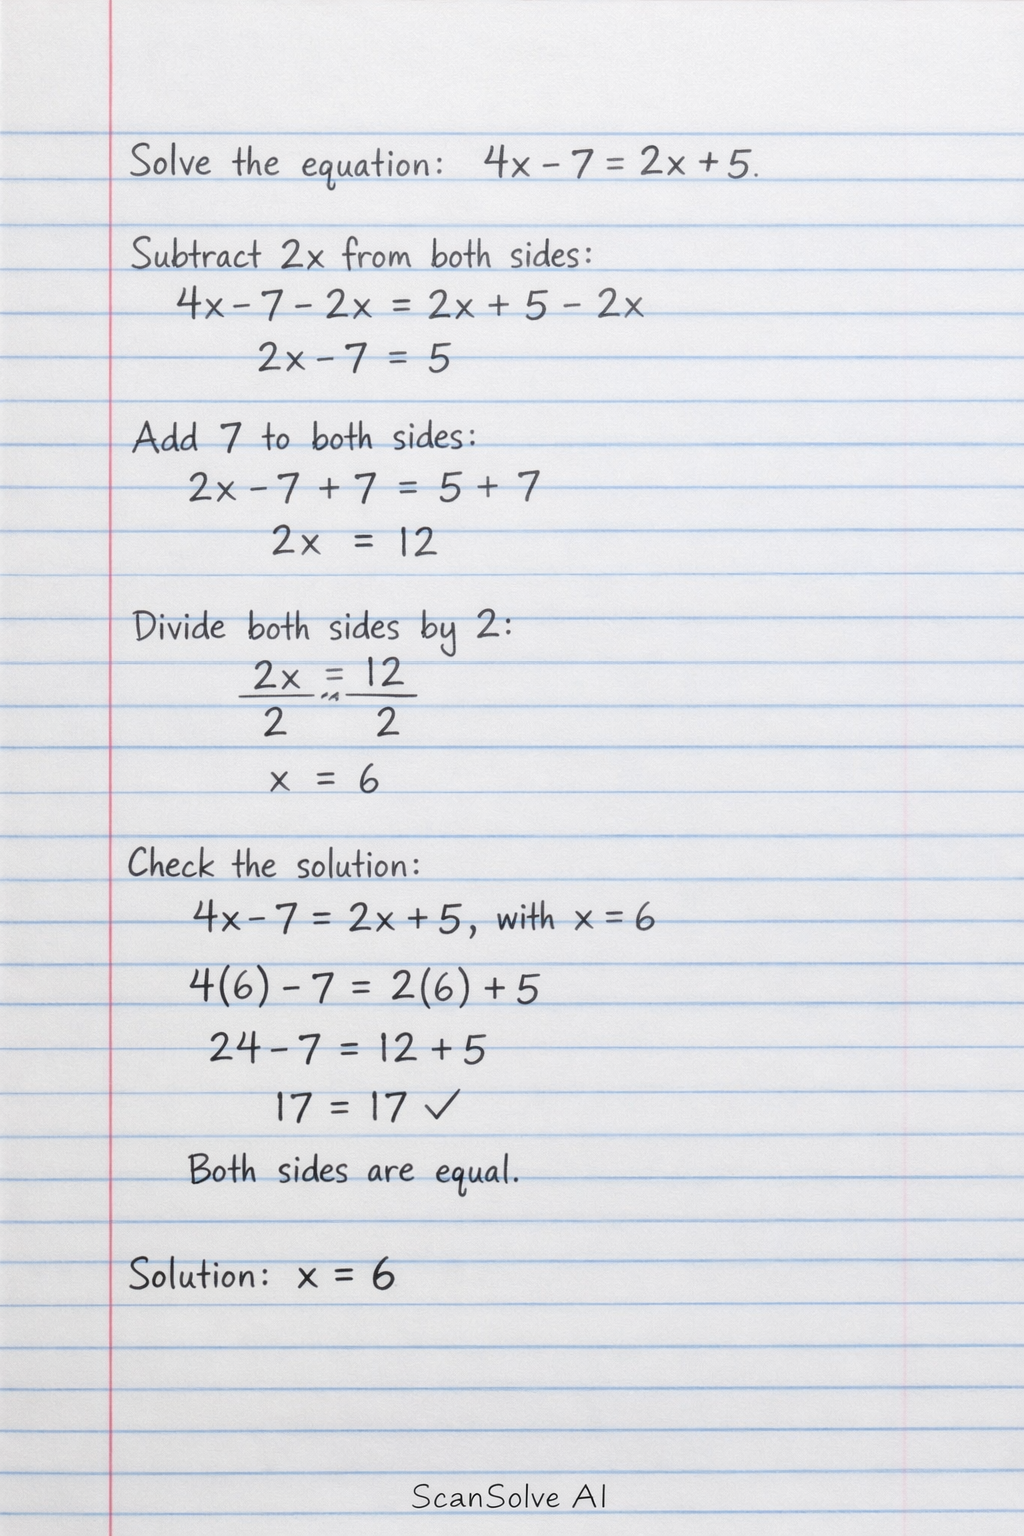 Solve the equation: 4x - 7 = 2x + 5.
Subtract 2x from both sides:
4x - 7 - 2x = 2x + 5 - 2x
2x - 7 = 5
Add 7 to both sides:
2x - 7 + 7 = 5 + 7
2x = 12
Divide both sides by 2:
2x = 12
2 2
x = 6
Check the solution:
4x - 7 = 2x + 5, with x = 6
4(6) - 7 = 2(6) + 5
24 - 7 = 12 + 5
17 = 17 ✓
Both sides are equal.
Solution: x = 6
ScanSolve AI